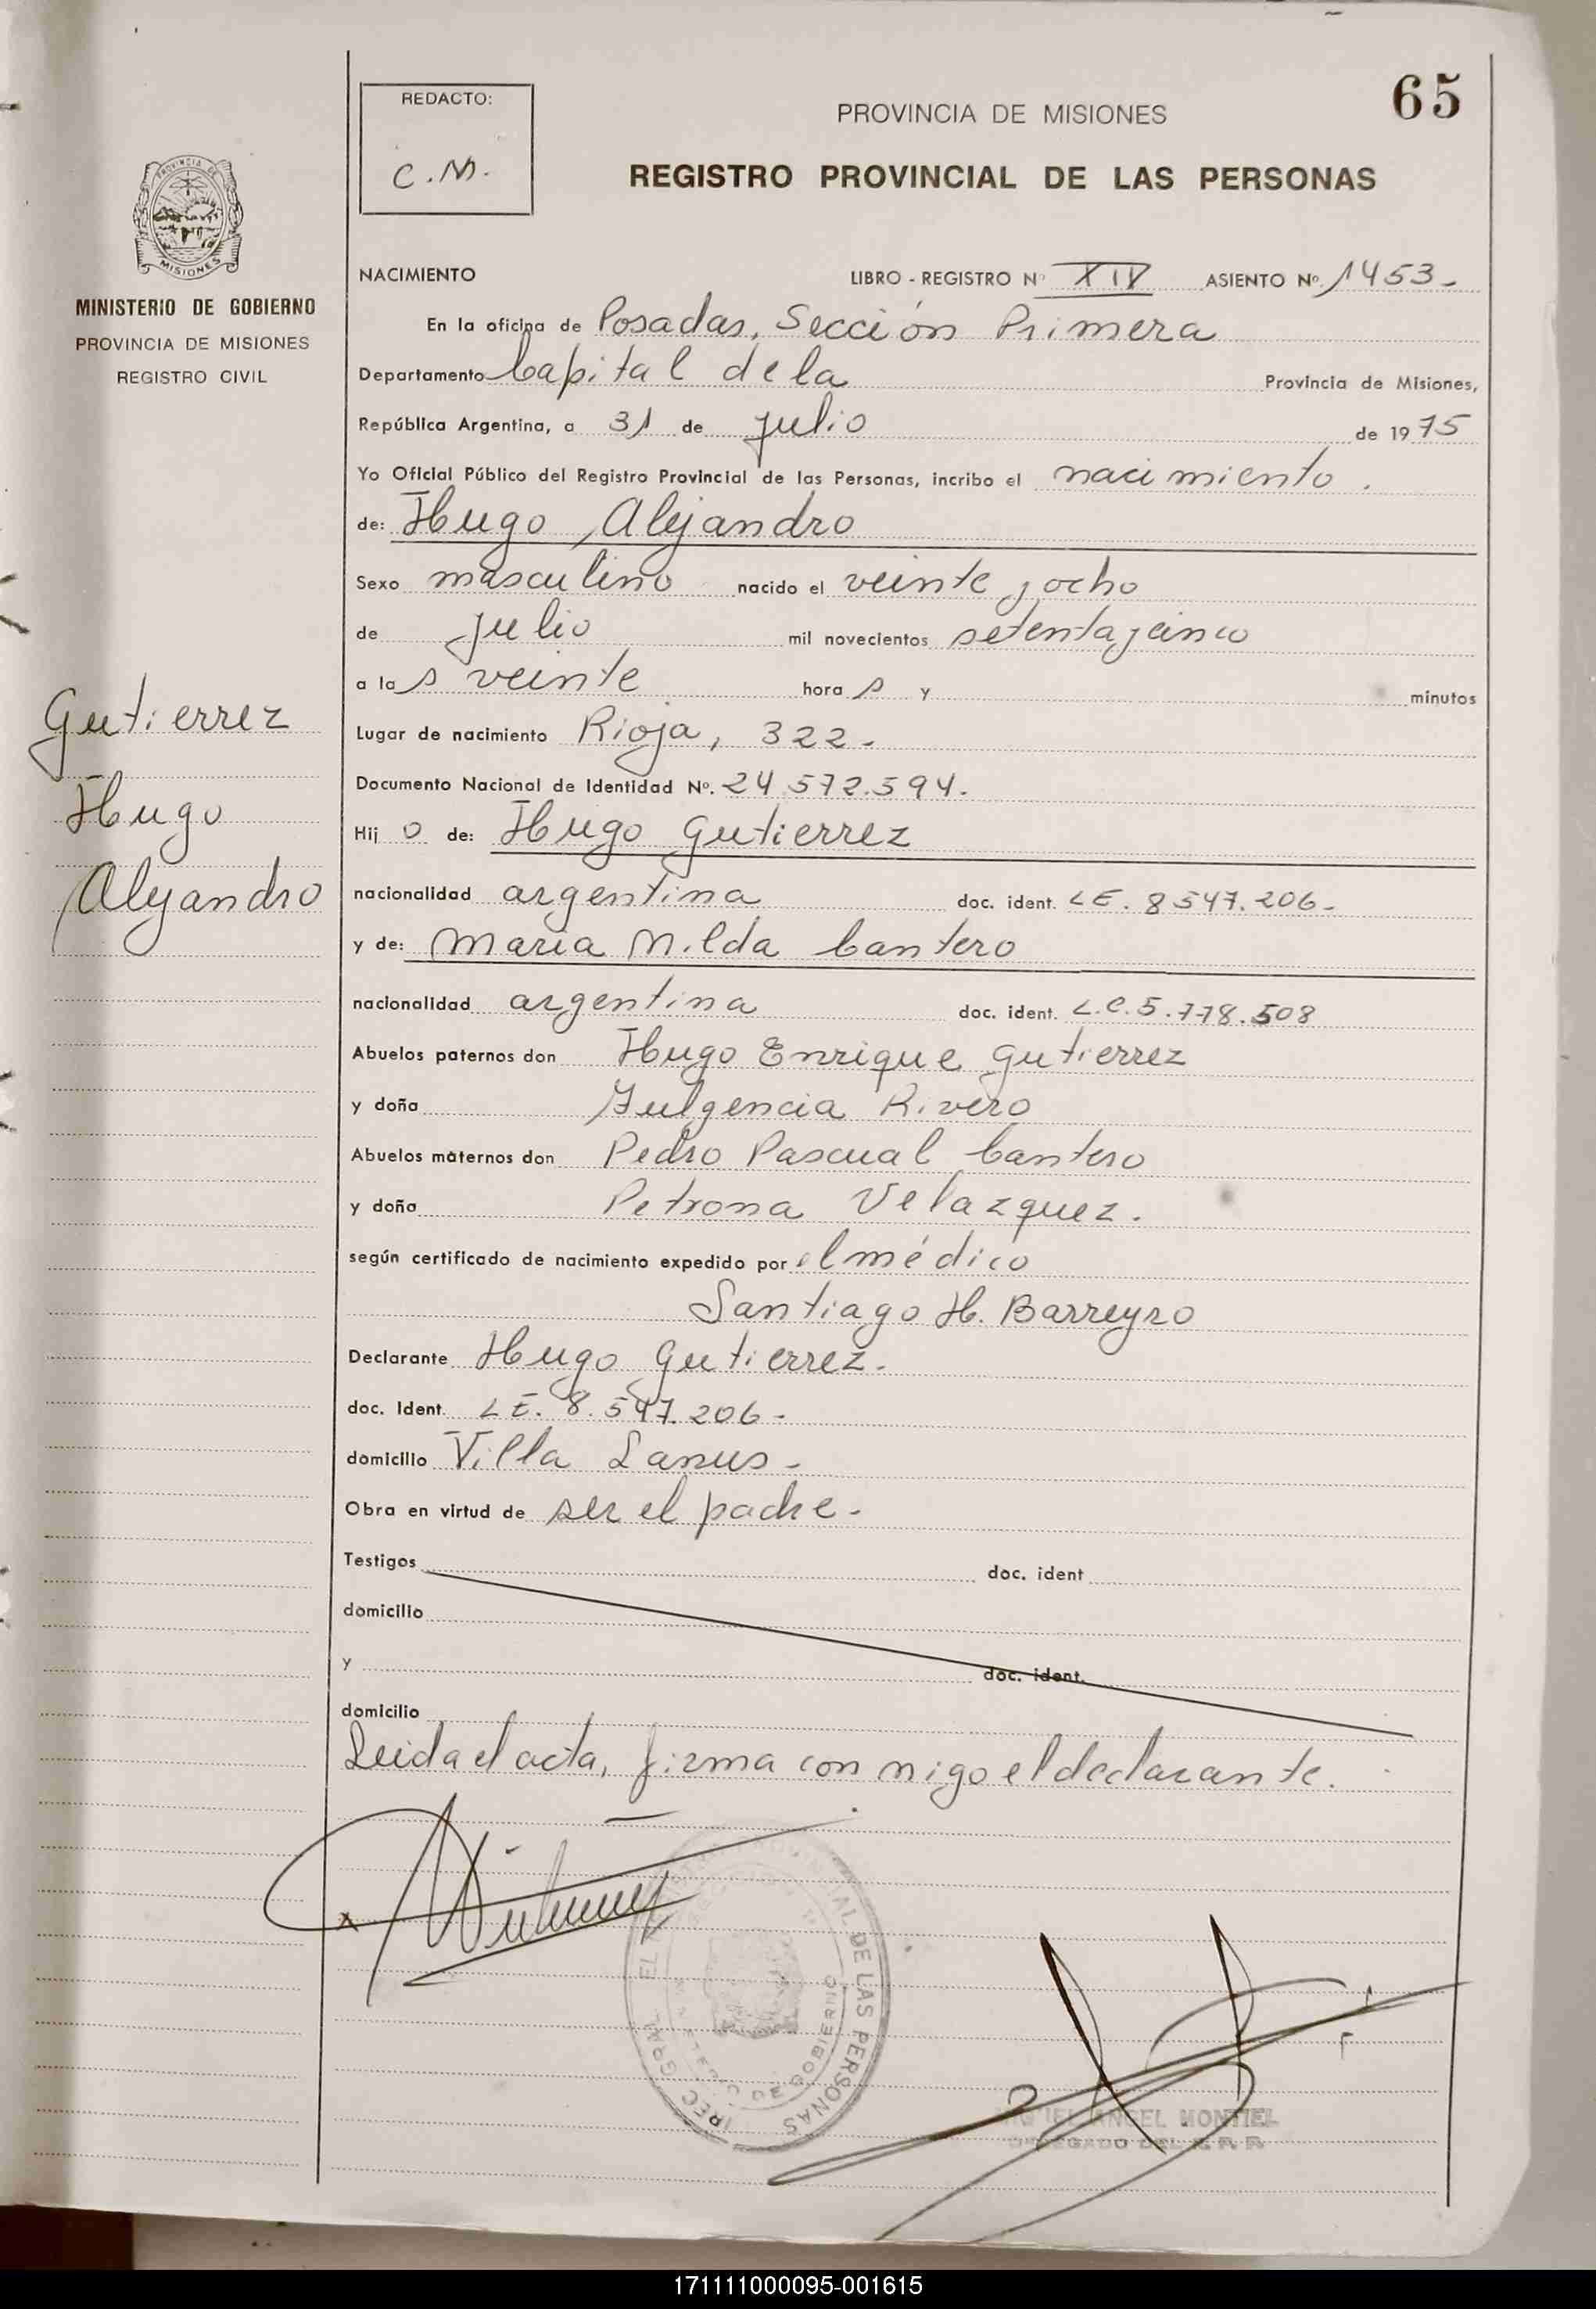 65
REDACTO:
C.M.
PROVINCIA DE MISIONES
REGISTRO PROVINCIAL DE LAS PERSONAS
PROVINCIA DE
MISIONES
MINISTERIO DE GOBIERNO
PROVINCIA DE MISIONES
REGISTRO CIVIL
Gutierrez
Hugo
Alejandro
NACIMIENTO LIBRO - REGISTRO Nº XIV ASIENTO Nº 1453-
En la oficina de Posadas, Sección Primera
Departamento Capital de la Provincia de Misiones,
República Argentina, a 31 de julio de 1975
Yo Oficial Público del Registro Provincial de las Personas, incribo el nacimiento.
de: Hugo Alejandro
Sexo masculino nacido el veinte y ocho
de julio mil novecientos setenta y cinco
a las veinte horas y minutos
Lugar de nacimiento Rioja, 322-
Documento Nacional de Identidad Nº. 24.572.594.
Hijo de: Hugo Gutierrez
nacionalidad argentina doc. ident. LE. 8547.206-
y de: Maria Nilda Cantero
nacionalidad argentina doc. ident. L.C. 5.778.508
Abuelos paternos don Hugo Enrique Gutierrez
y doña Fulgencia Rivero
Abuelos maternos don Pedro Pascual Cantero
y doña Petrona Velazquez.
según certificado de nacimiento expedido por el médico
Santiago H. Barreyro
Declarante Hugo Gutierrez.
doc. Ident. LE. 8.547.206-
domicilio Villa Lanus-
Obra en virtud de ser el padre-
Testigos doc. ident
domicilio
y doc. ident.
domicilio
Leida el acta, firma con migo el declarante.
x
DE LAS PERSONAS
DE GOBIERNO
MIGUEL ANGEL MONTIEL
DELEGADO DEL R.P.P.
171111000095-001615